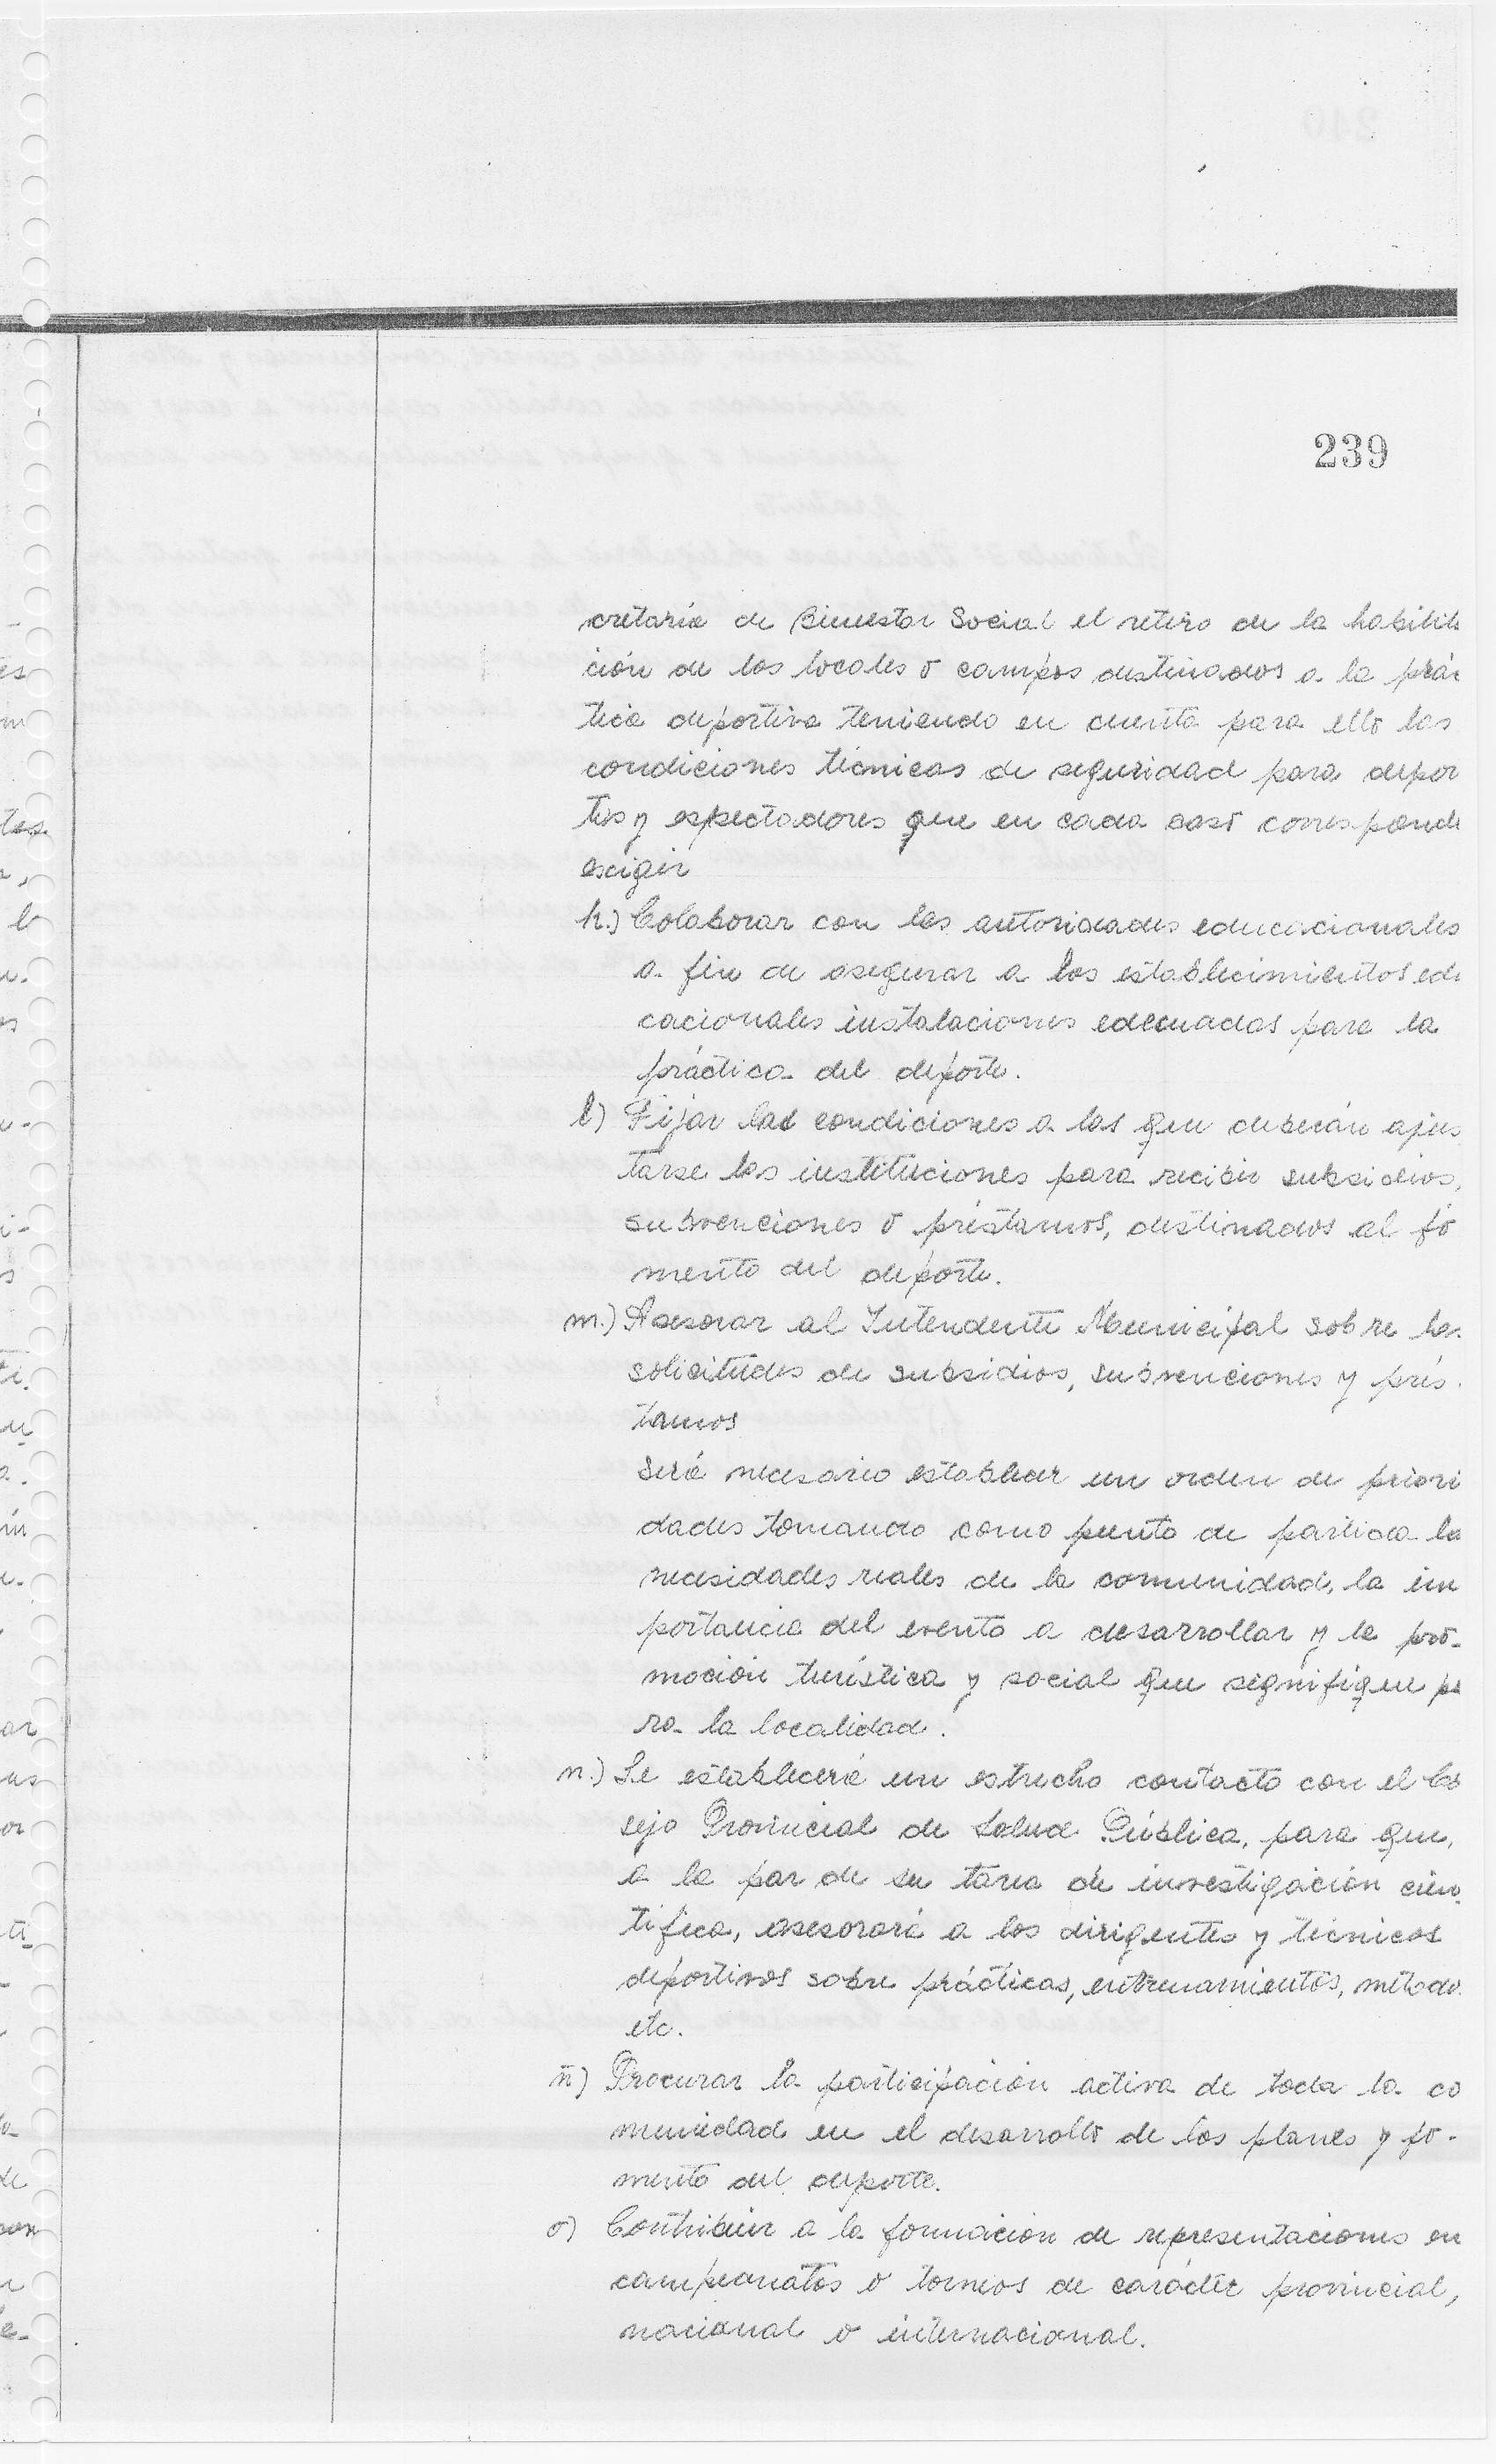 239
cretaría de Bienestar Social el retiro de la habilit
ción de los locales o campos destinados a la prác
tica deportiva teniendo en cuenta para ello las
condiciones técnicas de seguridad para depor
tes y espectadores que en cada caso corresponde
exigir
k.) Colaborar con las autoridades educacionales
a fin de asegurar a los establecimientos edu
cacionales instalaciones adecuadas para la
práctica del deporte.
l) Fijar las condiciones a las que deberán ajus
tarse las instituciones para recibir subsidios,
subvenciones o préstamos, destinados al fo
mento del deporte.
m.) Asesorar al Intendente Municipal sobre las
solicitudes de subsidios, subvenciones y prés.
tamos
será necesario establecer un orden de priori
dades tomando como punto de partida la
necesidades reales de la comunidad, la im
portancia del evento a desarrollar y la pro-
moción turística y social que signifique pa
ra la localidad.
n.) Se establecerá un estrecho contacto con el Co
sejo Provincial de Salud Pública, para que,
a la par de su tarea de investigación cien
tífica, asesorará a los dirigentes y técnicos
deportivos sobre prácticas, entrenamientos, método
etc.
ñ) Procurar la participación activa de toda la co
munidad en el desarrollo de los planes y fo-
mento del deporte.
o) Contribuir a la formación de representaciones en
campeonatos o torneos de carácter provincial,
nacional o internacional.